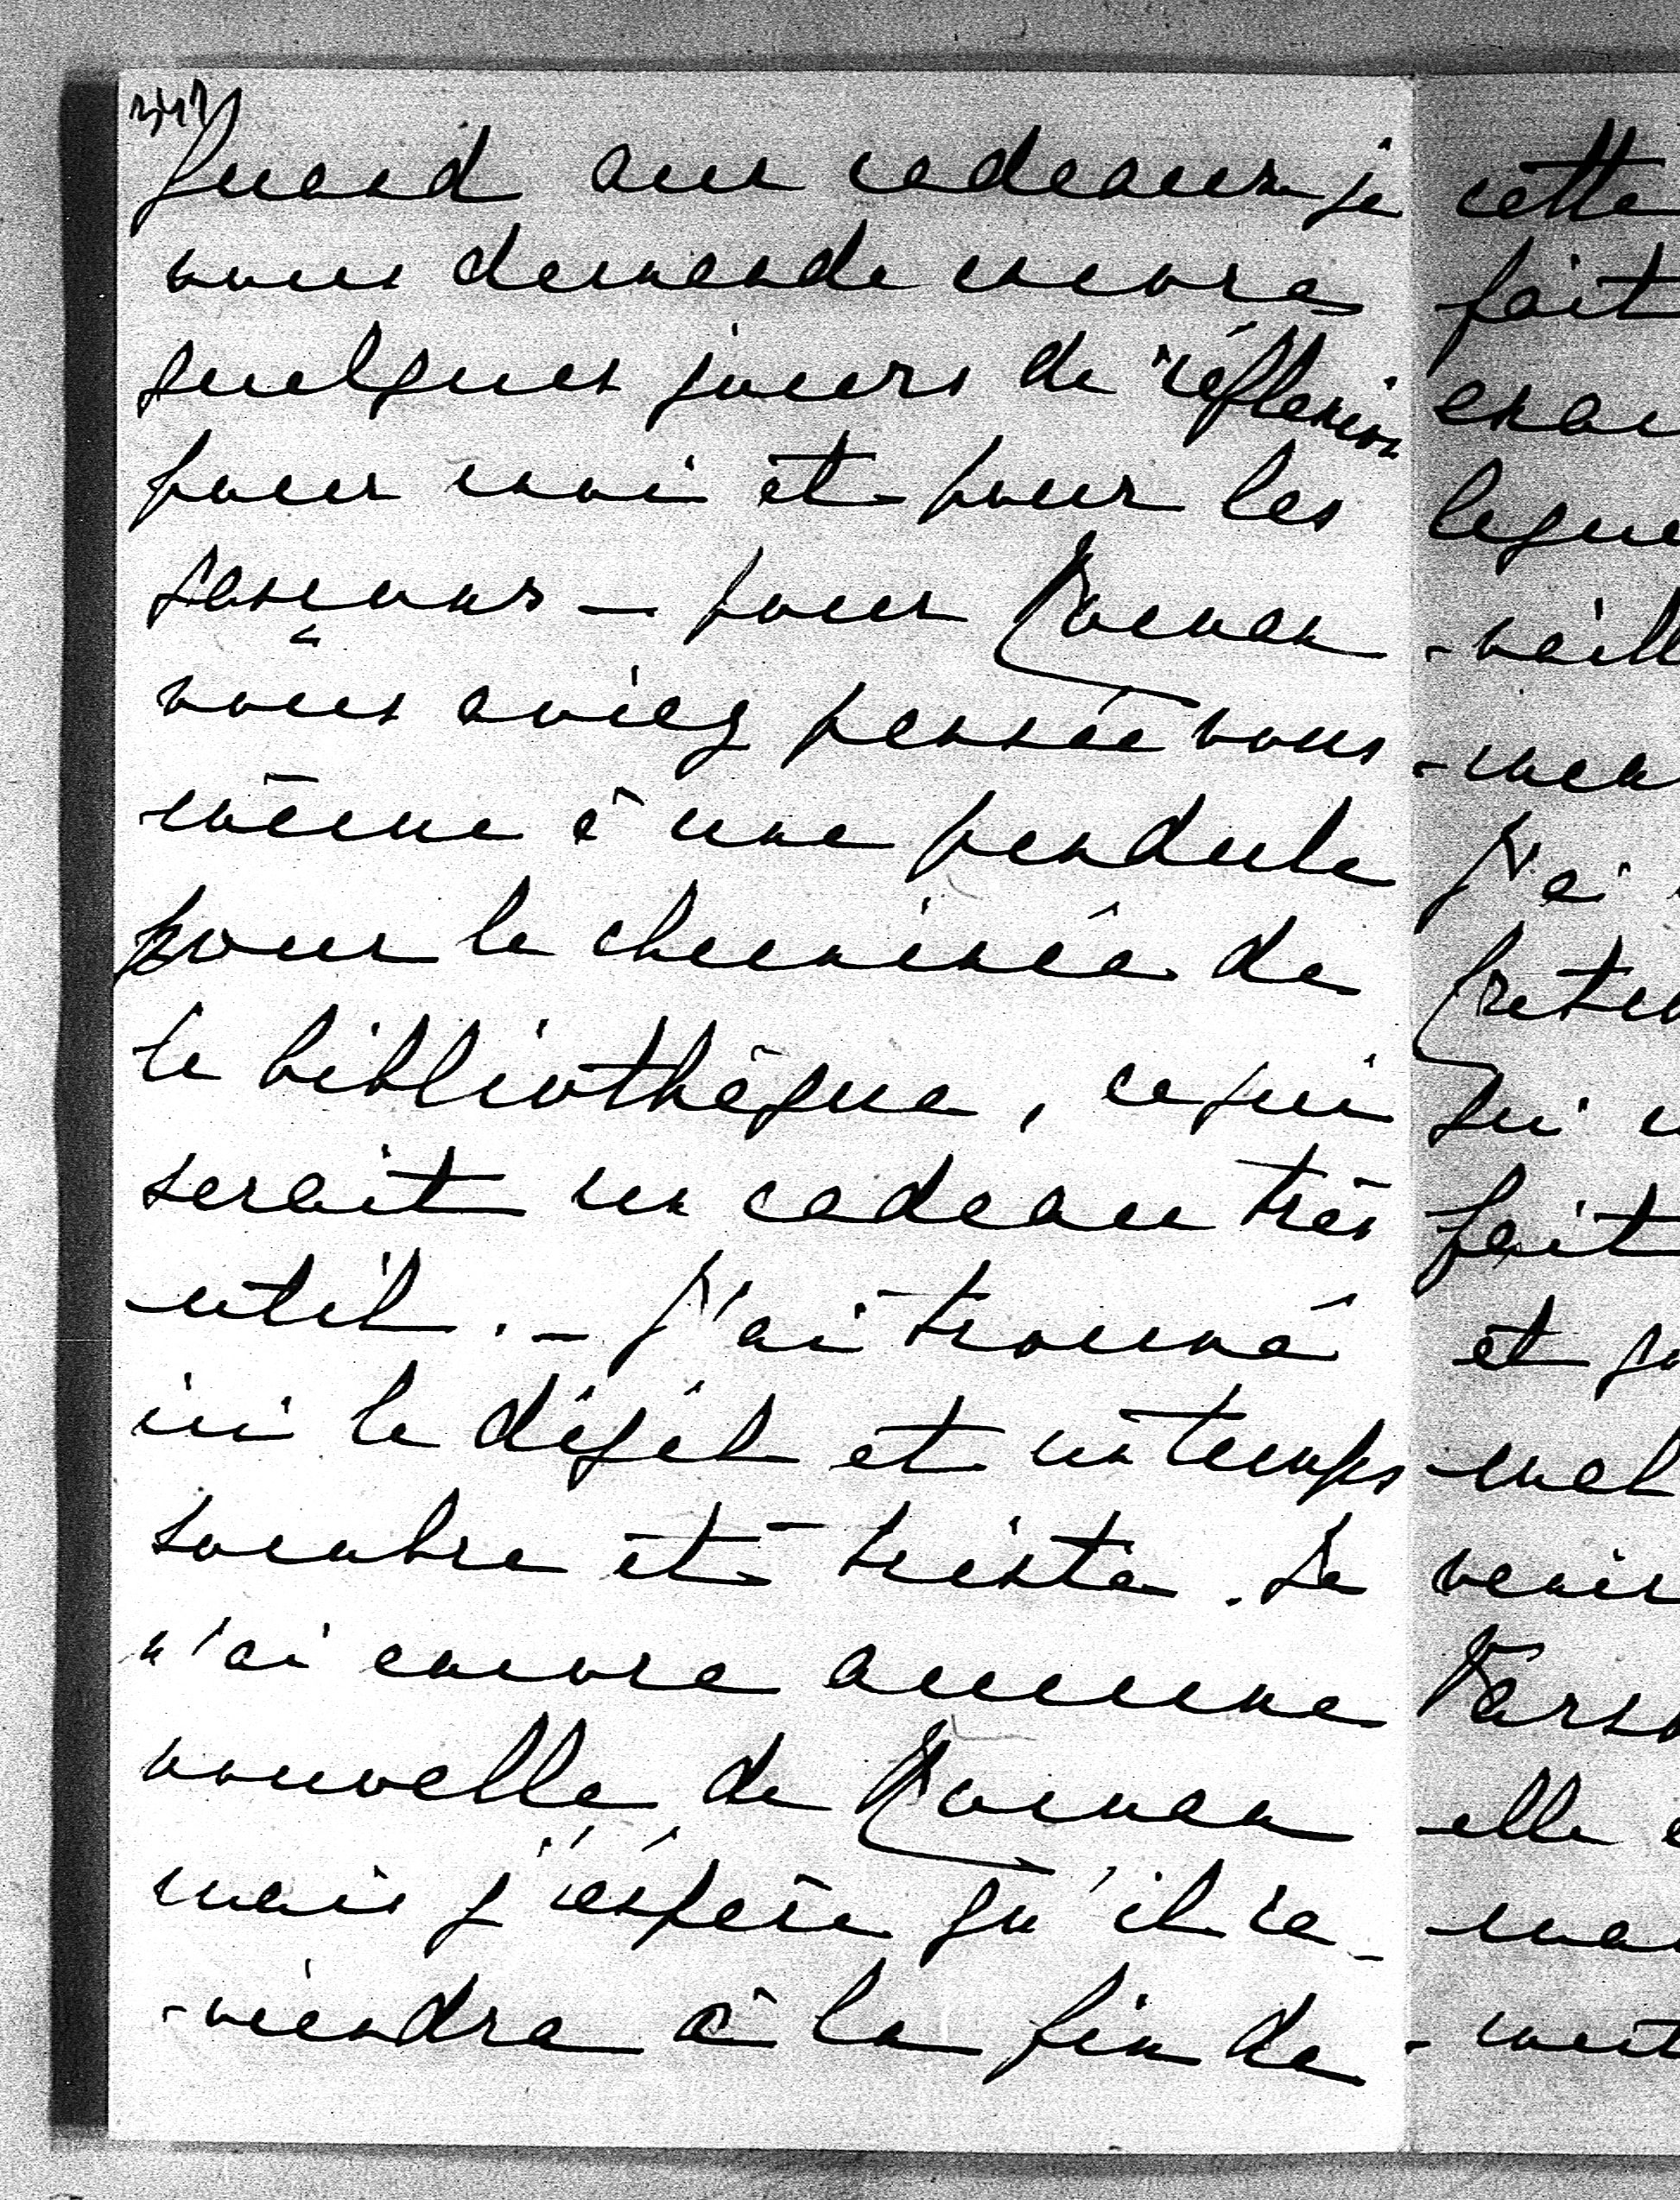 Quand aux cadeaux je
vous demande encore
quelques jours de réflexion
pour moi et pour les
garçons — pour Roman
vous aviez pensée vous
même à une pendule
pour la cheminée de
la bibliothèque, ce qui
serait un cadeau très
util. — J'ai trouvé
ici le dégel et un temps
sombre et triste. Je
n'ai encore aucune
nouvelle de Roman
mais j'éspère qu'il re-
-viendra à la fin de
cette
fait
et
elle